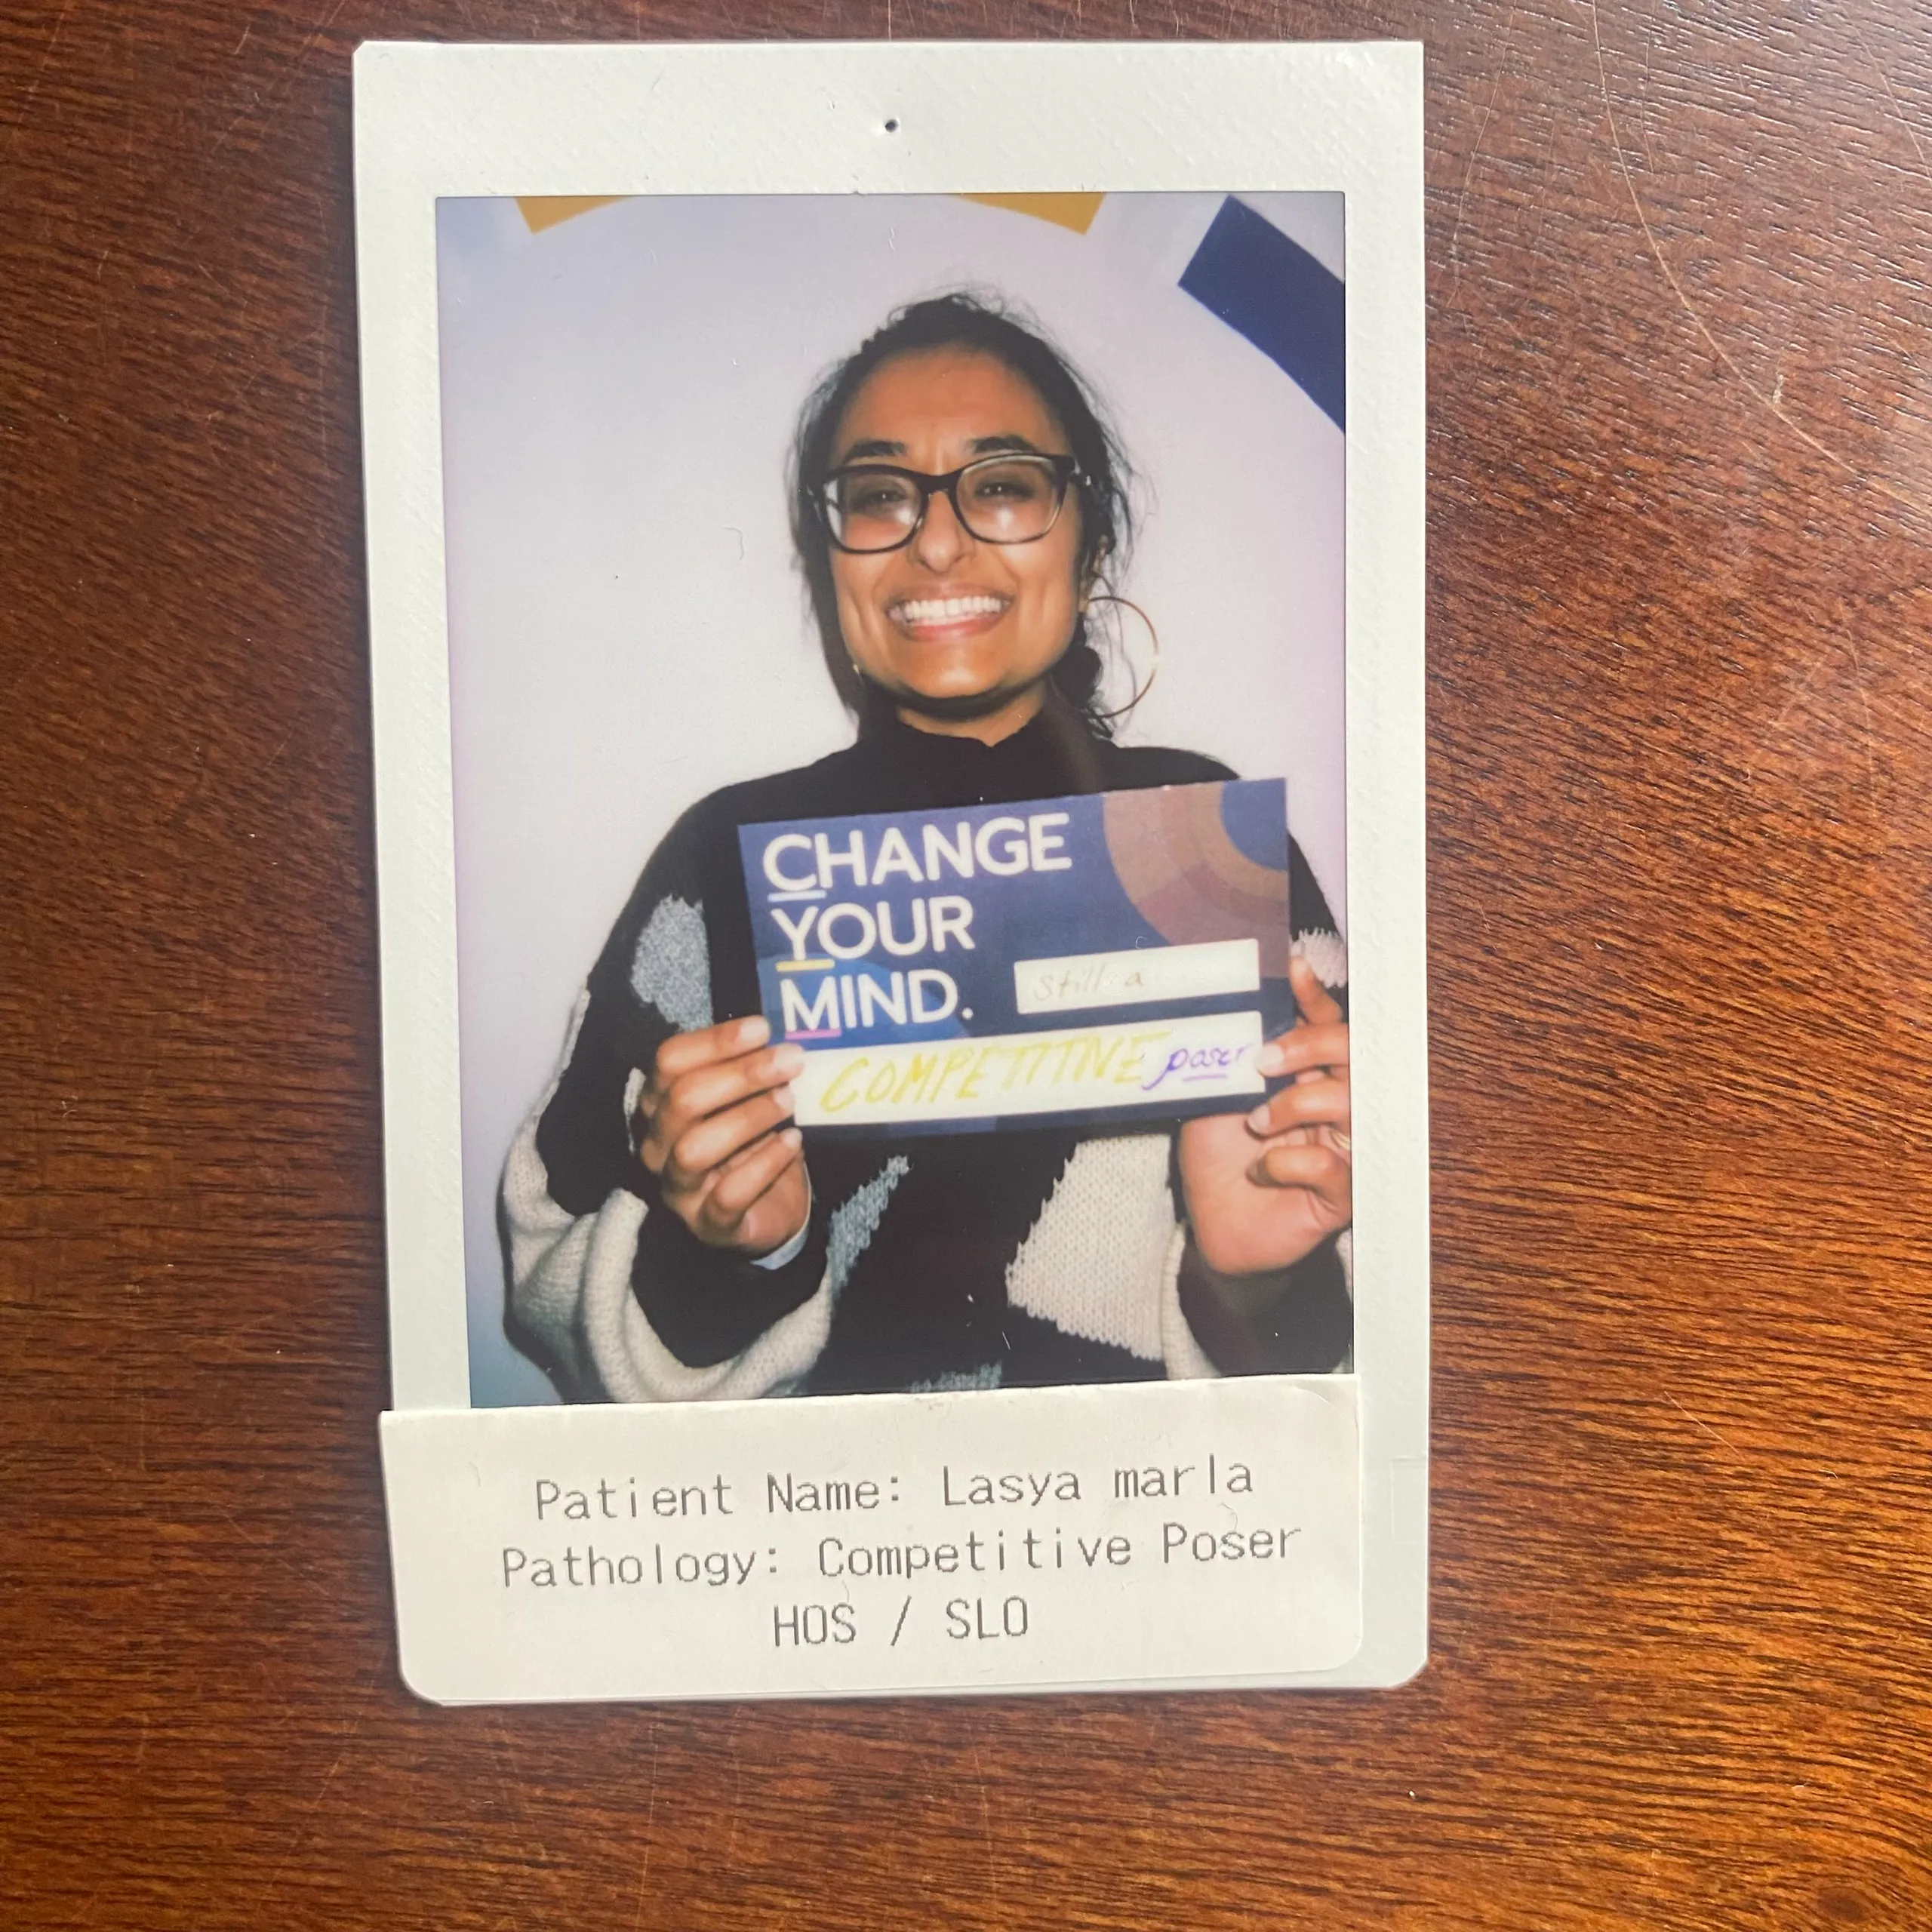 CHANGE
YOUR
MIND.
Still a
COMPETITIVE poser
Patient Name: Lasya marla
Pathology: Competitive Poser
HOS / SLO